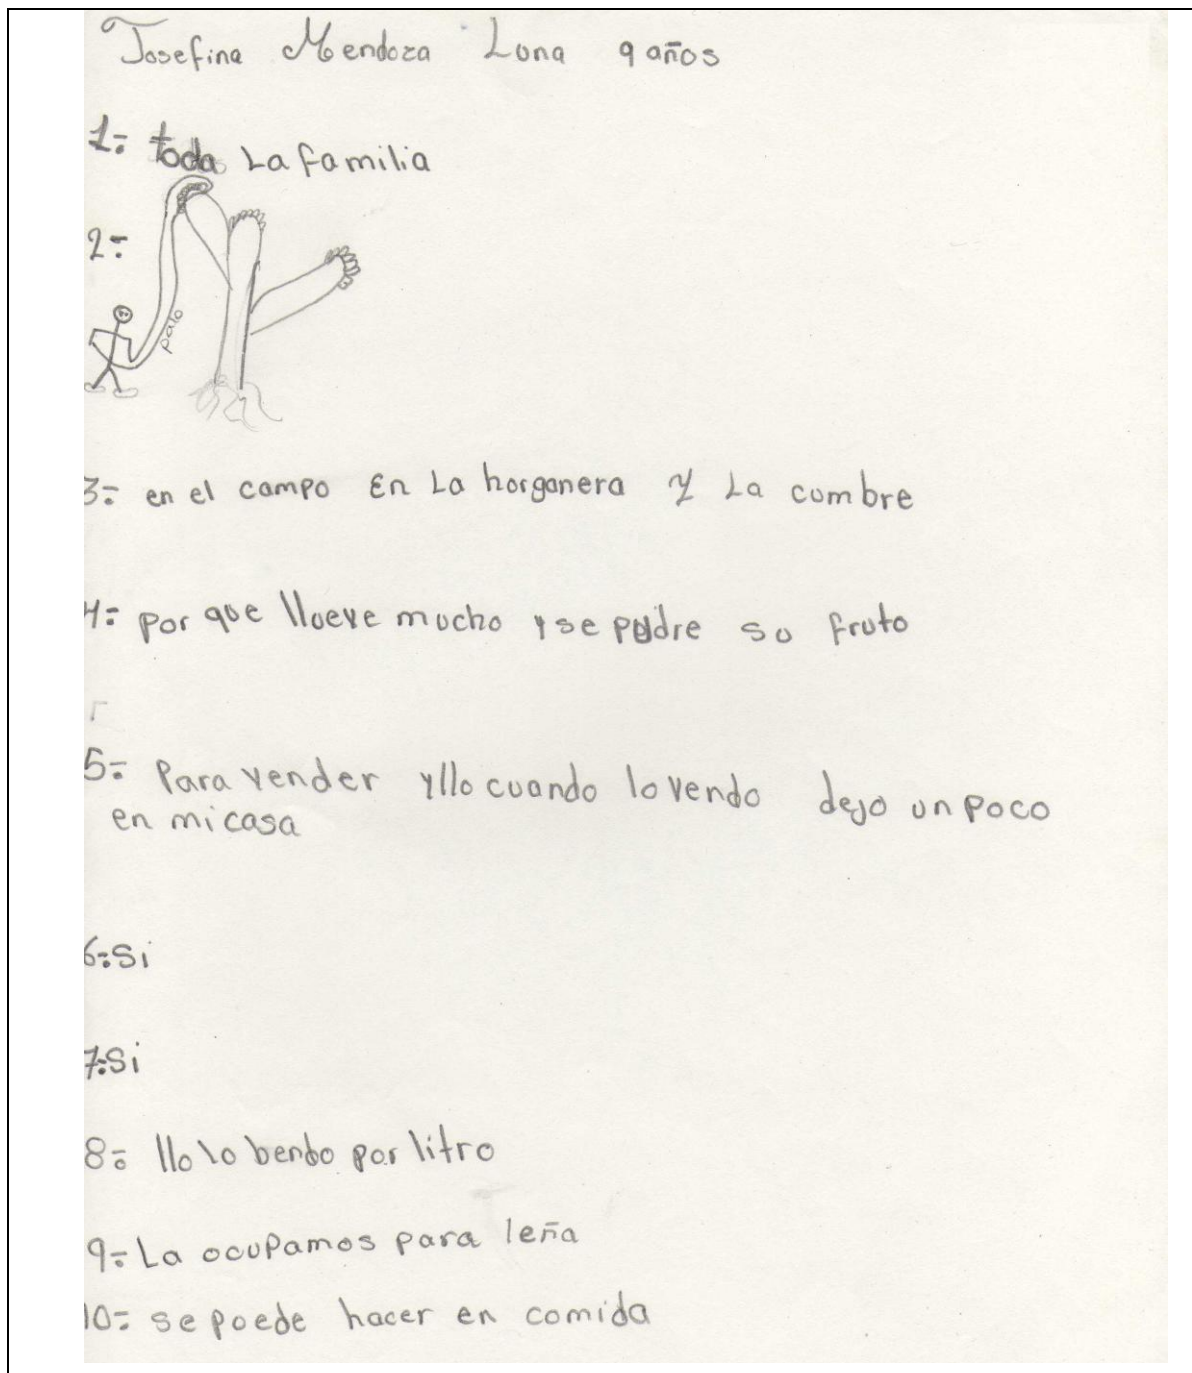 Josefina Mendoza Luna 9 años
1= toda La familia
2=
palo
3= en el campo En La horganera Y La cumbre
4= por que llueve mucho y se pudre su fruto
5= Para vender yllo cuando lo vendo dejo un poco
en mi casa
6= Si
7= Si
8= llo lo bendo por litro
9= La ocupamos para leña
10= se puede hacer en comida